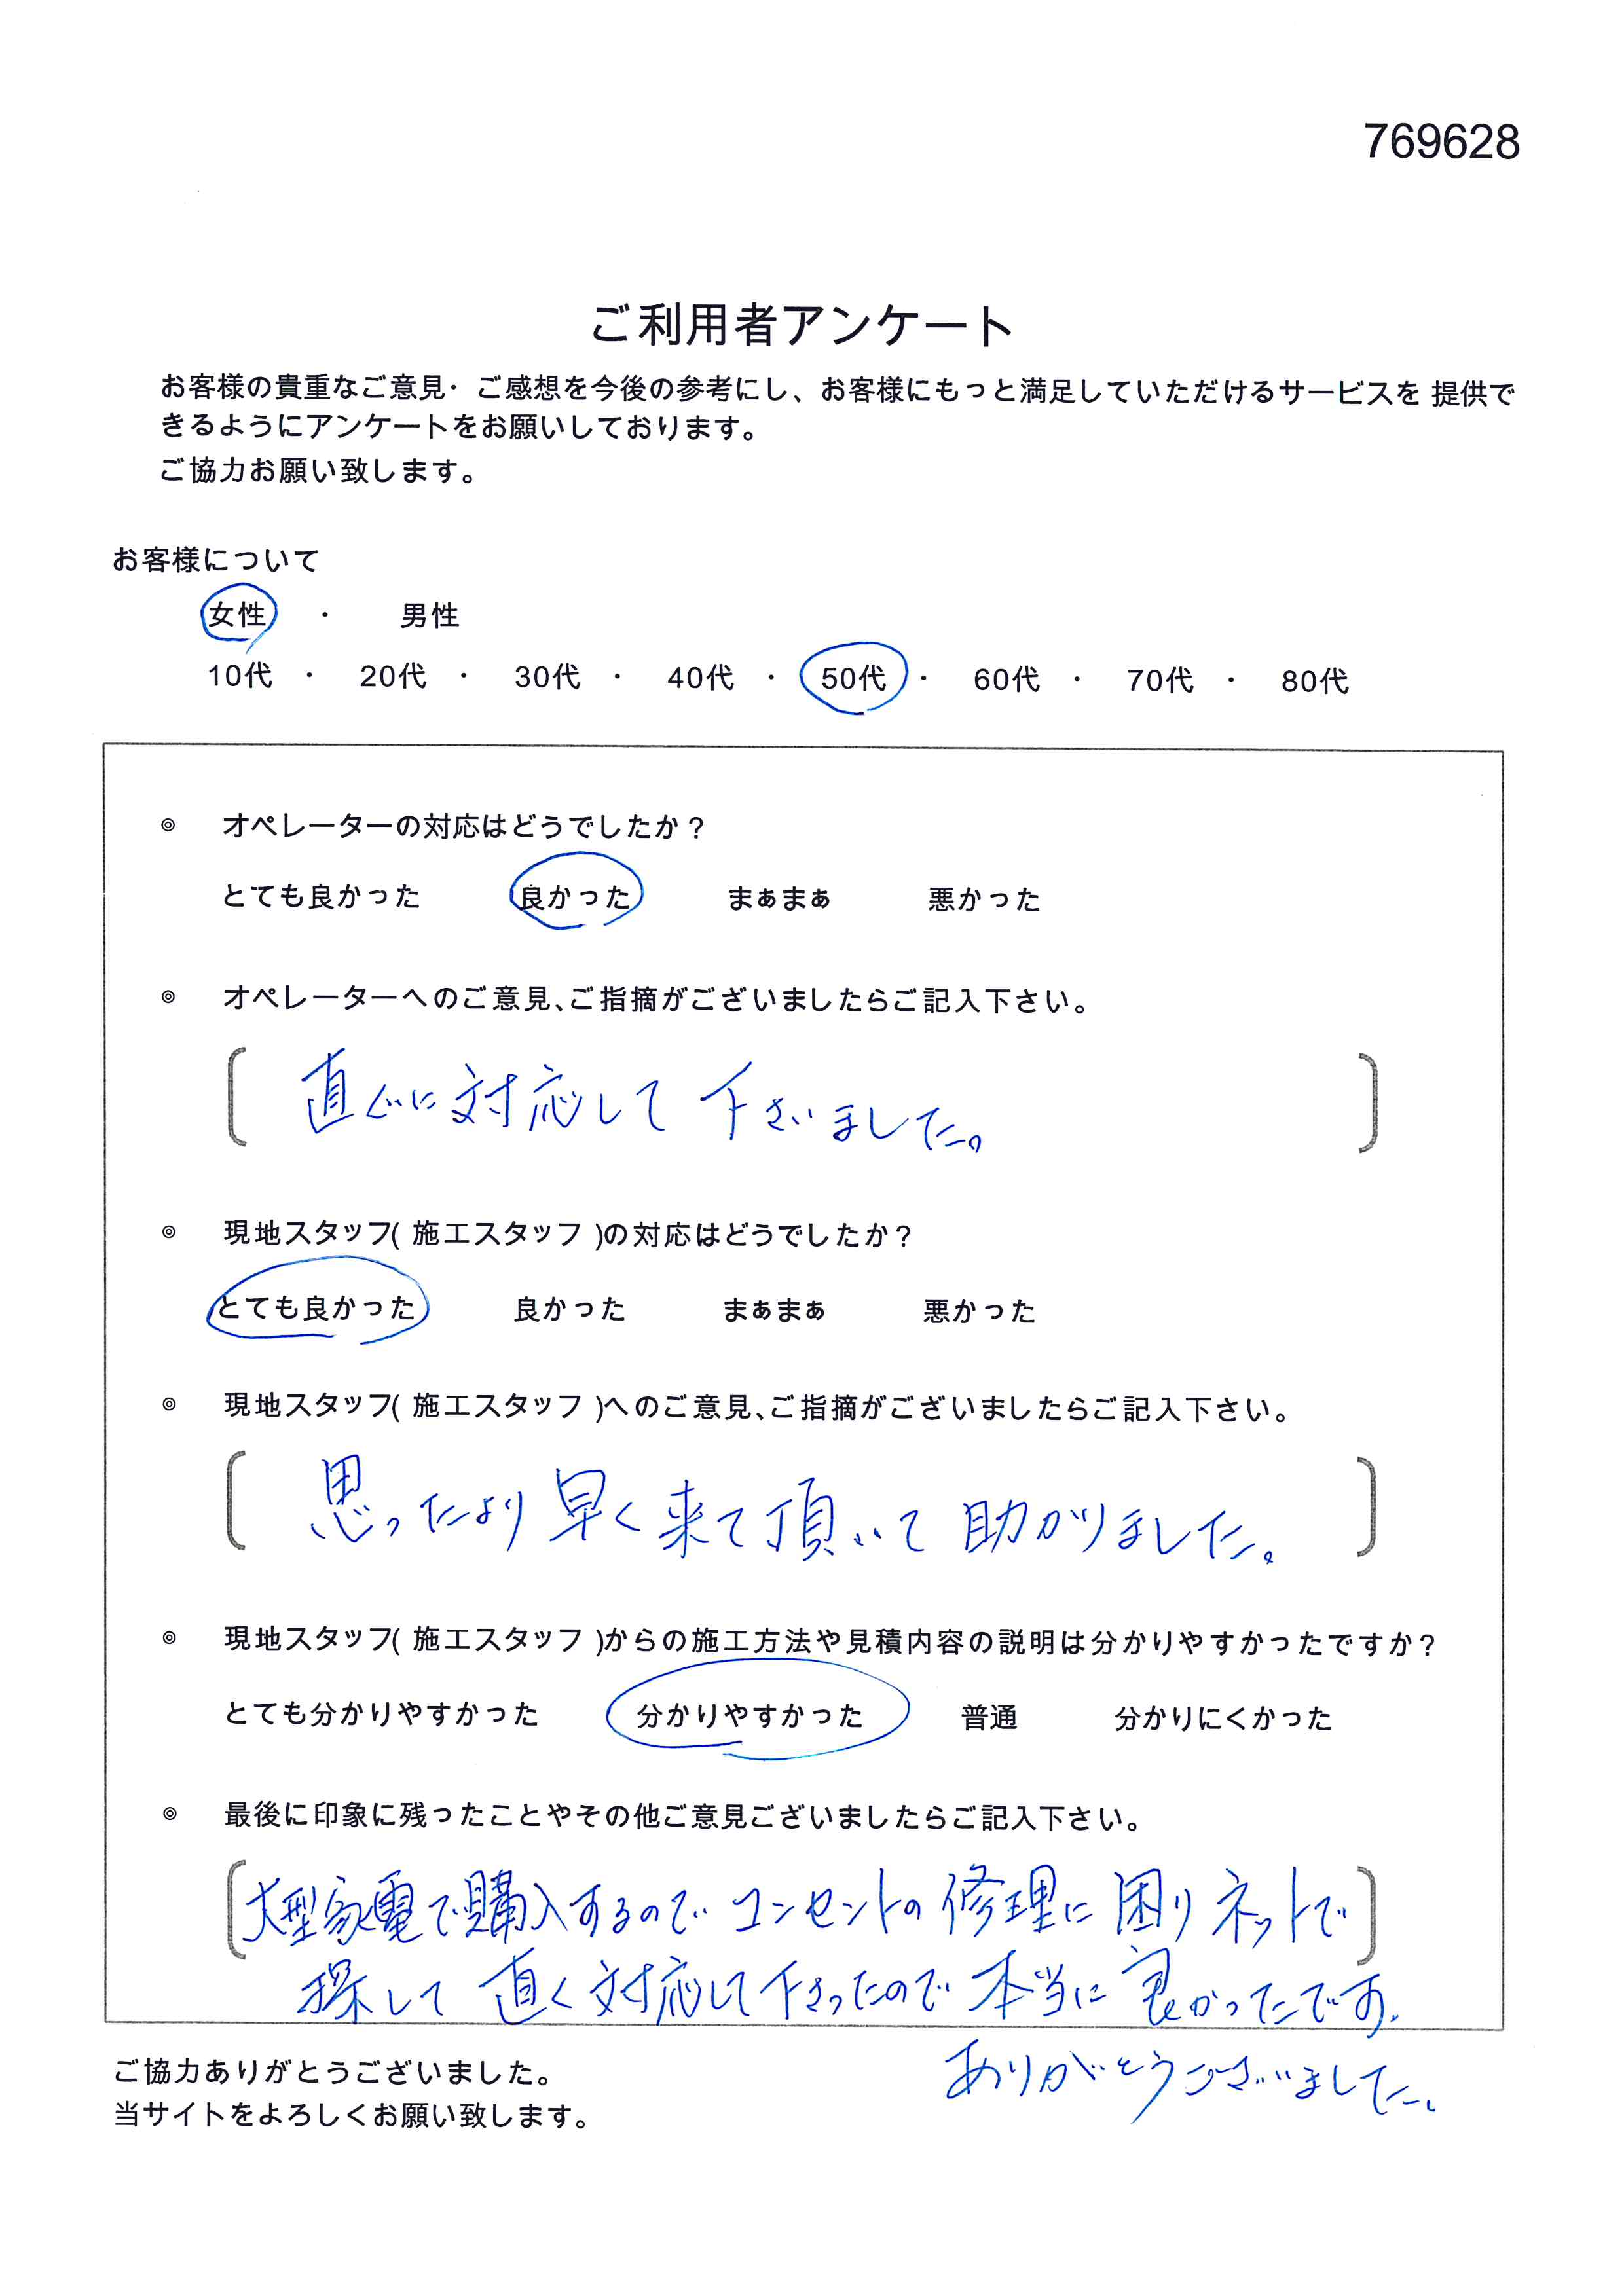 769628
ご利用者アンケート
お客様の貴重なご意見・ご感想を今後の参考にし、お客様にもっと満足していただけるサービスを 提供で
きるようにアンケートをお願いしております。
ご協力お願い致します。
お客様について
女性 ・ 男性
10代 ・ 20代 ・ 30代 ・ 40代 ・ 50代 ・ 60代 ・ 70代 ・ 80代
◎ オペレーターの対応はどうでしたか？
とても良かった 良かった まぁまぁ 悪かった
◎ オペレーターへのご意見、ご指摘がございましたらご記入下さい。
直ぐに対応して下さいました。
◎ 現地スタッフ( 施工スタッフ )の対応はどうでしたか？
とても良かった 良かった まぁまぁ 悪かった
◎ 現地スタッフ( 施工スタッフ )へのご意見、ご指摘がございましたらご記入下さい。
思ったより早く来て頂いて助かりました。
◎ 現地スタッフ( 施工スタッフ )からの施工方法や見積内容の説明は分かりやすかったですか？
とても分かりやすかった 分かりやすかった 普通 分かりにくかった
◎ 最後に印象に残ったことやその他ご意見ございましたらご記入下さい。
大型家電で購入するのでコンセントの修理に困りネットで
探して直ぐ対応して下さったので本当に良かったです.
ありがとうございました。
ご協力ありがとうございました。
当サイトをよろしくお願い致します。